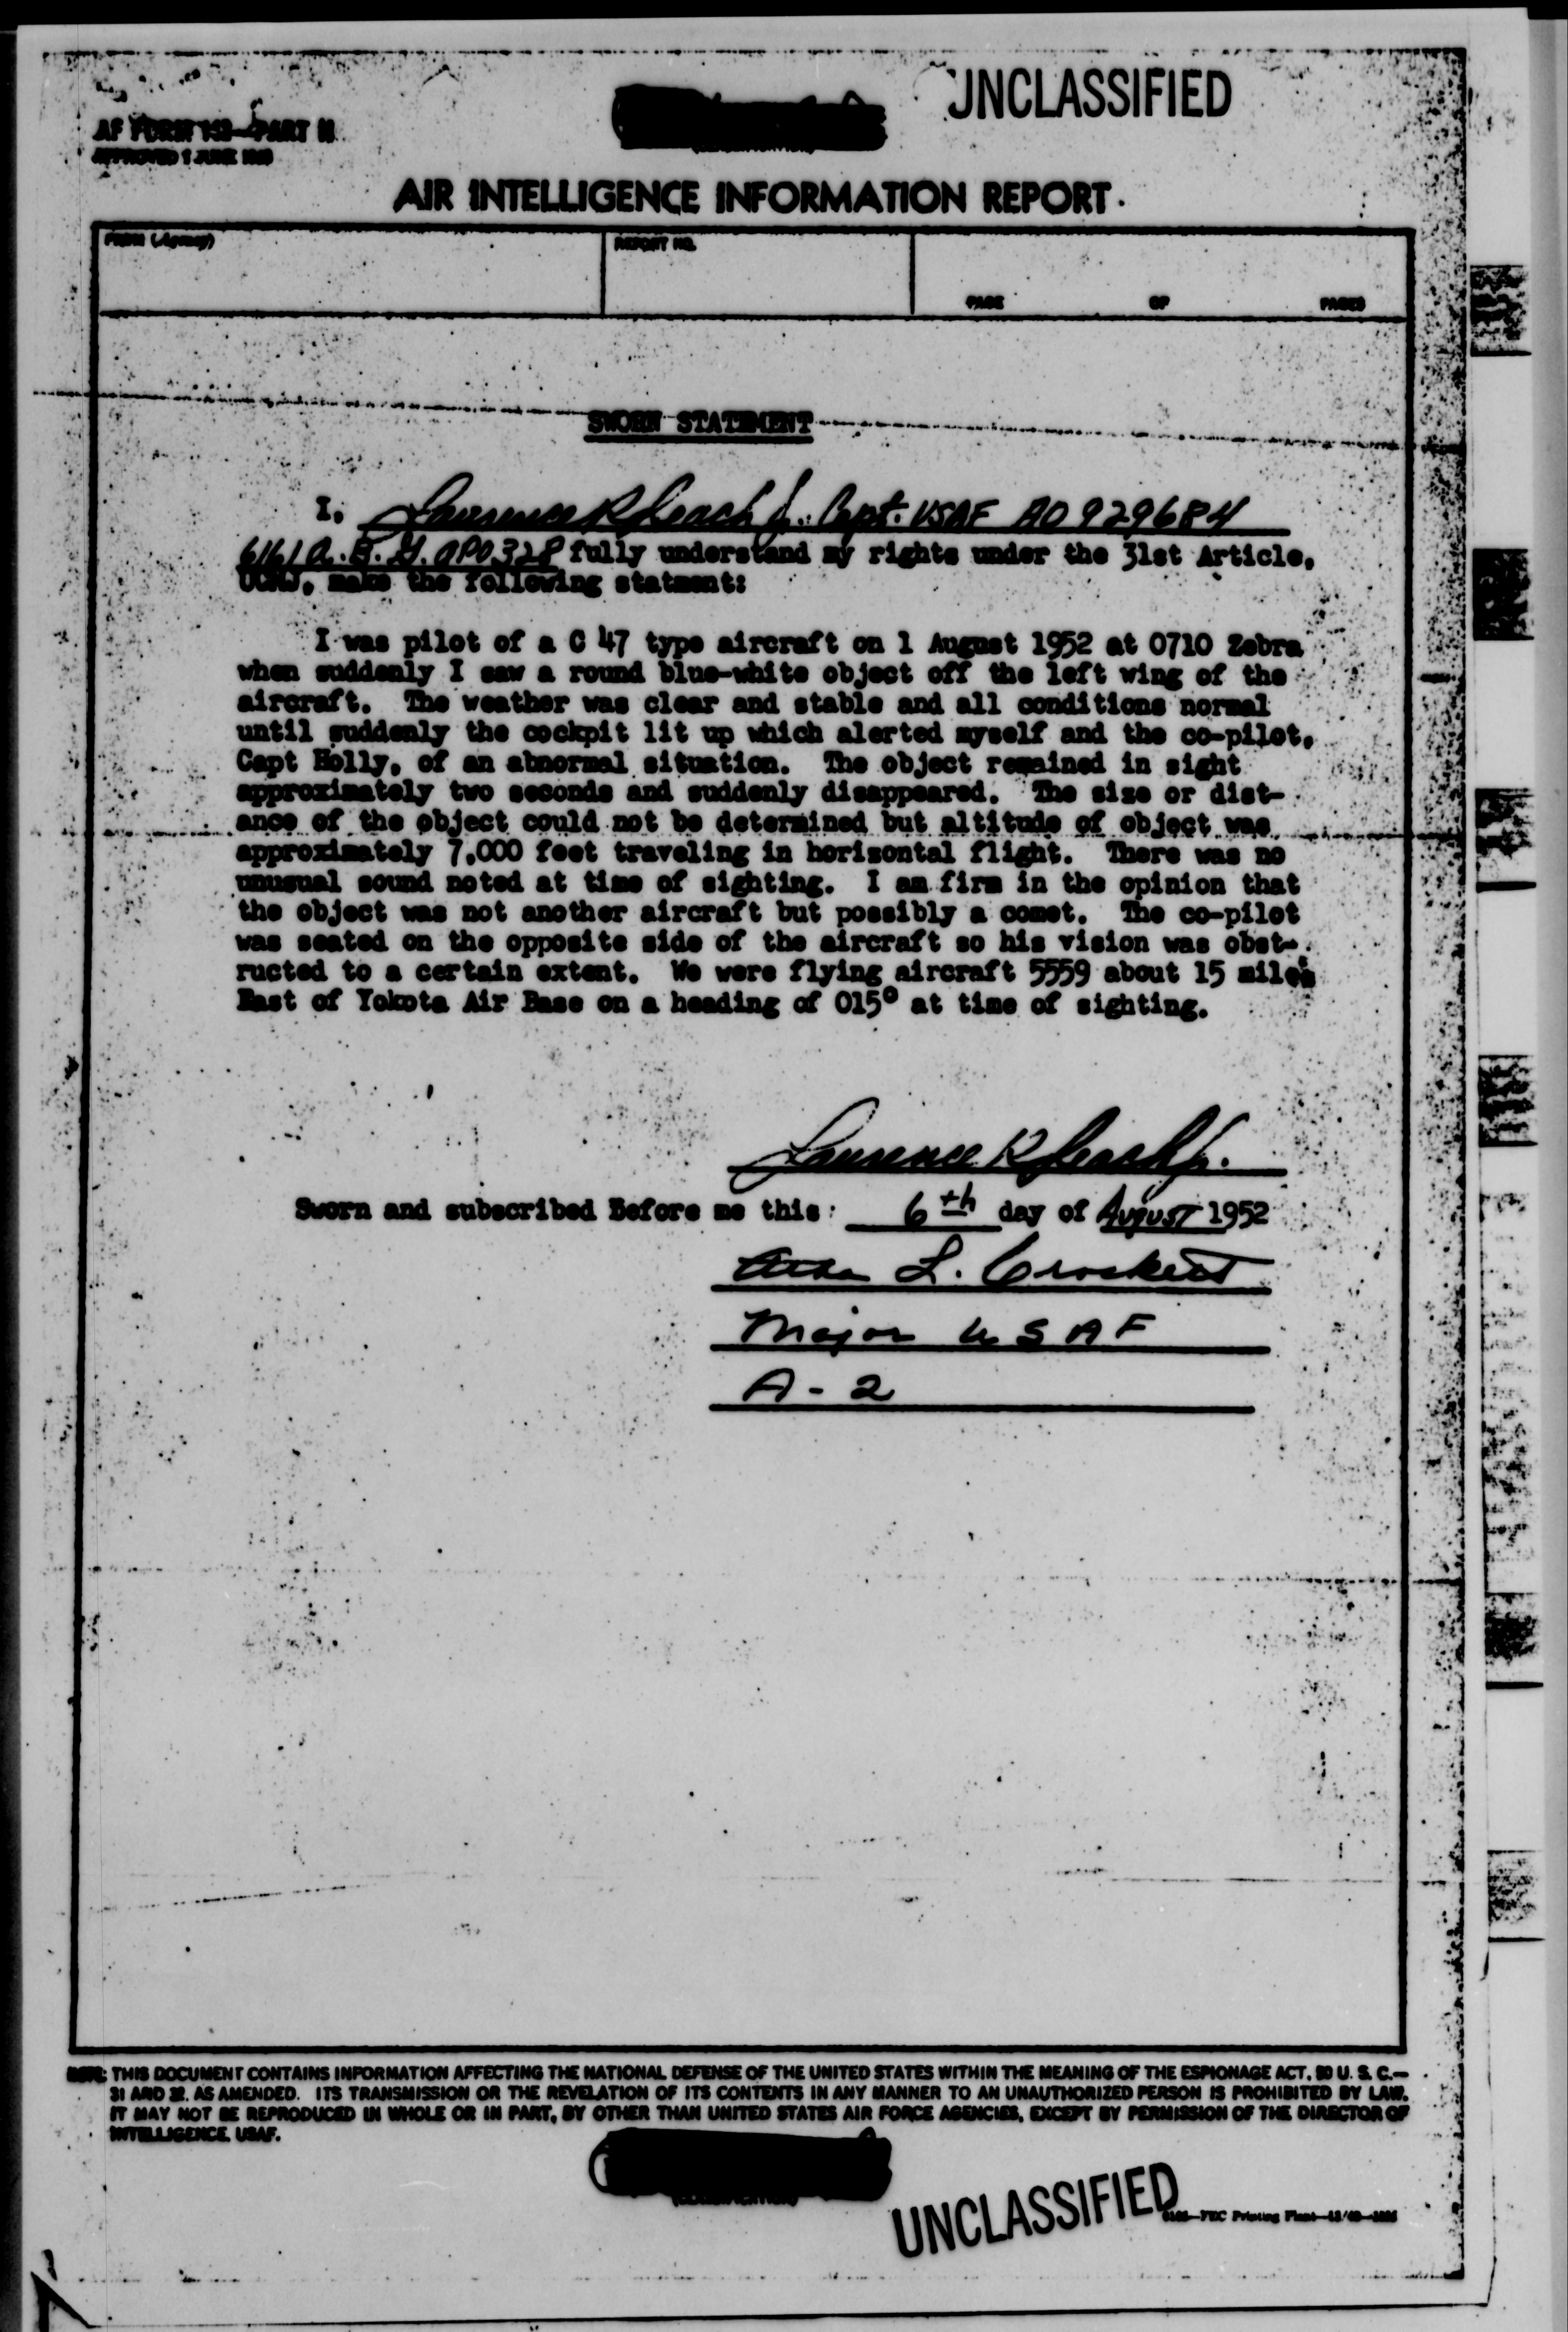 UNCLASSIFIED
AF FORM 112—PART II
APPROVED 1 JUNE 1948
AIR INTELLIGENCE INFORMATION REPORT
FROM (Agency)
REPORT NO.
PAGE OF PAGES
SWORN STATEMENT
I, Laurence R Leach Jr. Capt. USAF AO 929684
6161 A. B. G. APO 328 fully understand my rights under the 31st Article,
UCMJ, make the following statment:
I was pilot of a C 47 type aircraft on 1 August 1952 at 0710 Zebra
when suddenly I saw a round blue-white object off the left wing of the
aircraft. The weather was clear and stable and all conditions normal
until suddenly the cockpit lit up which alerted myself and the co-pilot,
Capt Holly, of an abnormal situation. The object remained in sight
approximately two seconds and suddenly disappeared. The size or dist-
ance of the object could not be determined but altitude of object was
approximately 7,000 feet traveling in horizontal flight. There was no
unusual sound noted at time of sighting. I am firm in the opinion that
the object was not another aircraft but possibly a comet. The co-pilot
was seated on the opposite side of the aircraft so his vision was obst-
ructed to a certain extent. We were flying aircraft 5559 about 15 miles
East of Yokota Air Base on a heading of 015° at time of sighting.
Laurence R Leach Jr.
Sworn and subscribed Before me this: 6th day of August 1952
L. Crockett
Major USAF
A-2
NOTE: THIS DOCUMENT CONTAINS INFORMATION AFFECTING THE NATIONAL DEFENSE OF THE UNITED STATES WITHIN THE MEANING OF THE ESPIONAGE ACT, 50 U. S. C.—
31 AND 32, AS AMENDED. ITS TRANSMISSION OR THE REVELATION OF ITS CONTENTS IN ANY MANNER TO AN UNAUTHORIZED PERSON IS PROHIBITED BY LAW.
IT MAY NOT BE REPRODUCED IN WHOLE OR IN PART, BY OTHER THAN UNITED STATES AIR FORCE AGENCIES, EXCEPT BY PERMISSION OF THE DIRECTOR OF
INTELLIGENCE, USAF.
UNCLASSIFIED
FEC Printing Plant